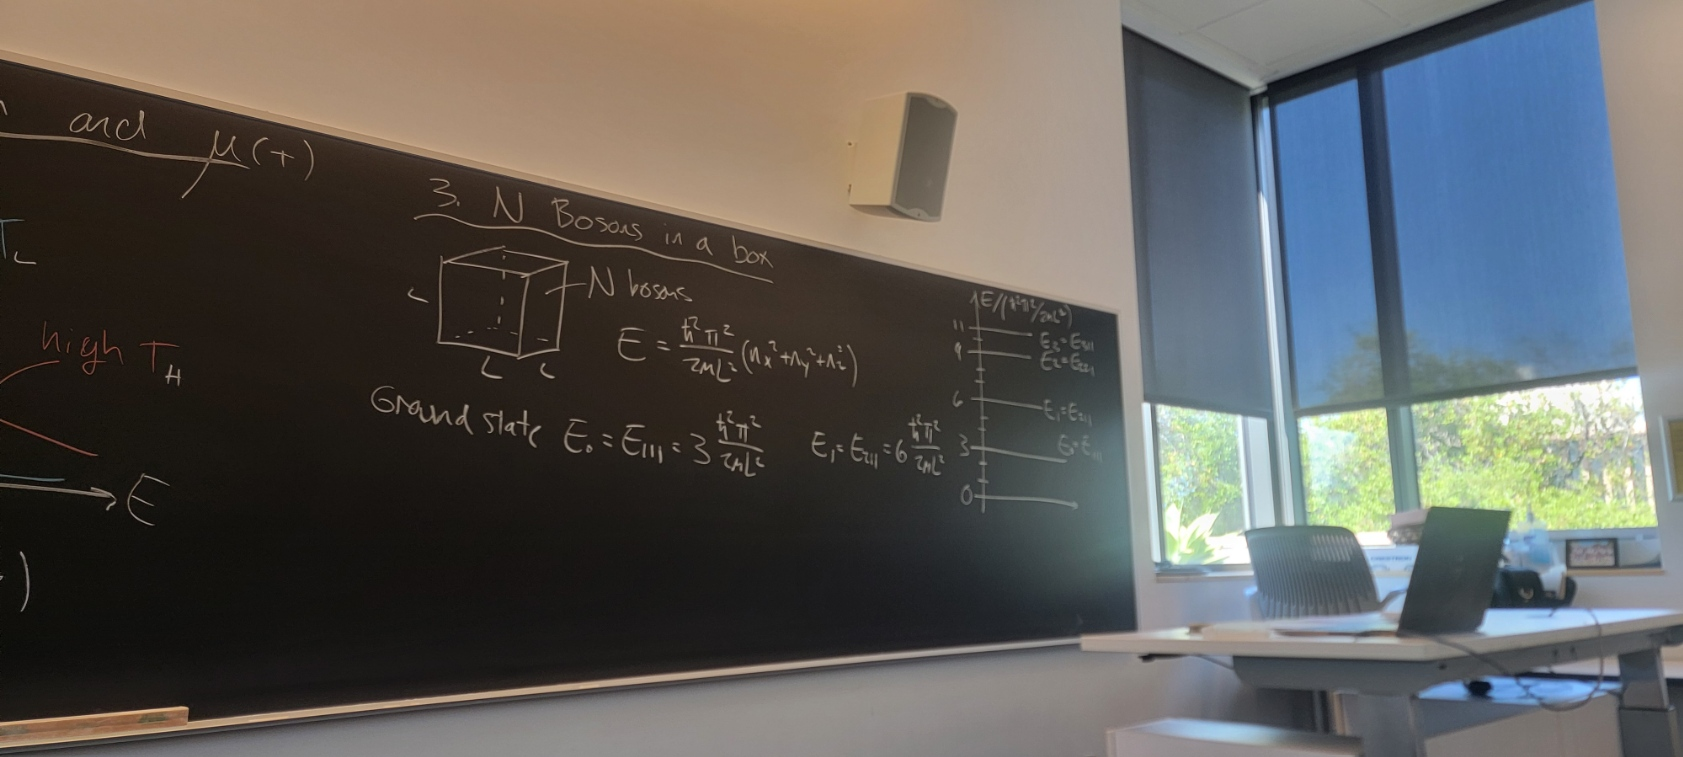 and μ(τ)
T_L
high T_H
E
)
3. N Bosons in a box
N bosons
L
L L
E = ħ²π²/2mL² (n_x² + n_y² + n_z²)
Ground state E₀ = E₁₁₁ = 3 ħ²π²/2mL²
E₁ = E₂₁₁ = 6 ħ²π²/2mL²
E/(ħ²π²/2mL²)
11 E₃ = E₃₁₁
9 E₂ = E₂₂₁
6 E₁ = E₂₁₁
3 E₀ = E₁₁₁
0